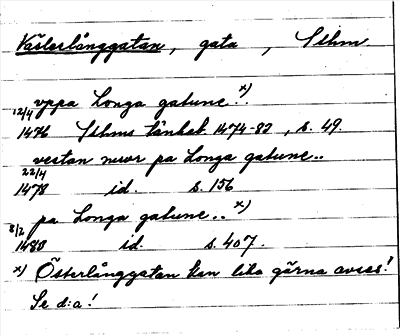 Västerlånggatan, gata, Sthm.
vppa Longa gatune.. x)
12/4
1476 Sthms tänkeb. 1474-83, s. 49.
vestan mwr pa Longa gatune..
22/4
1478 id. s. 156
pa Longa gatune.. x)
8/2
1480 id. s. 407.
x) Österlånggatan kan lika gärna avses!
Se d:a!